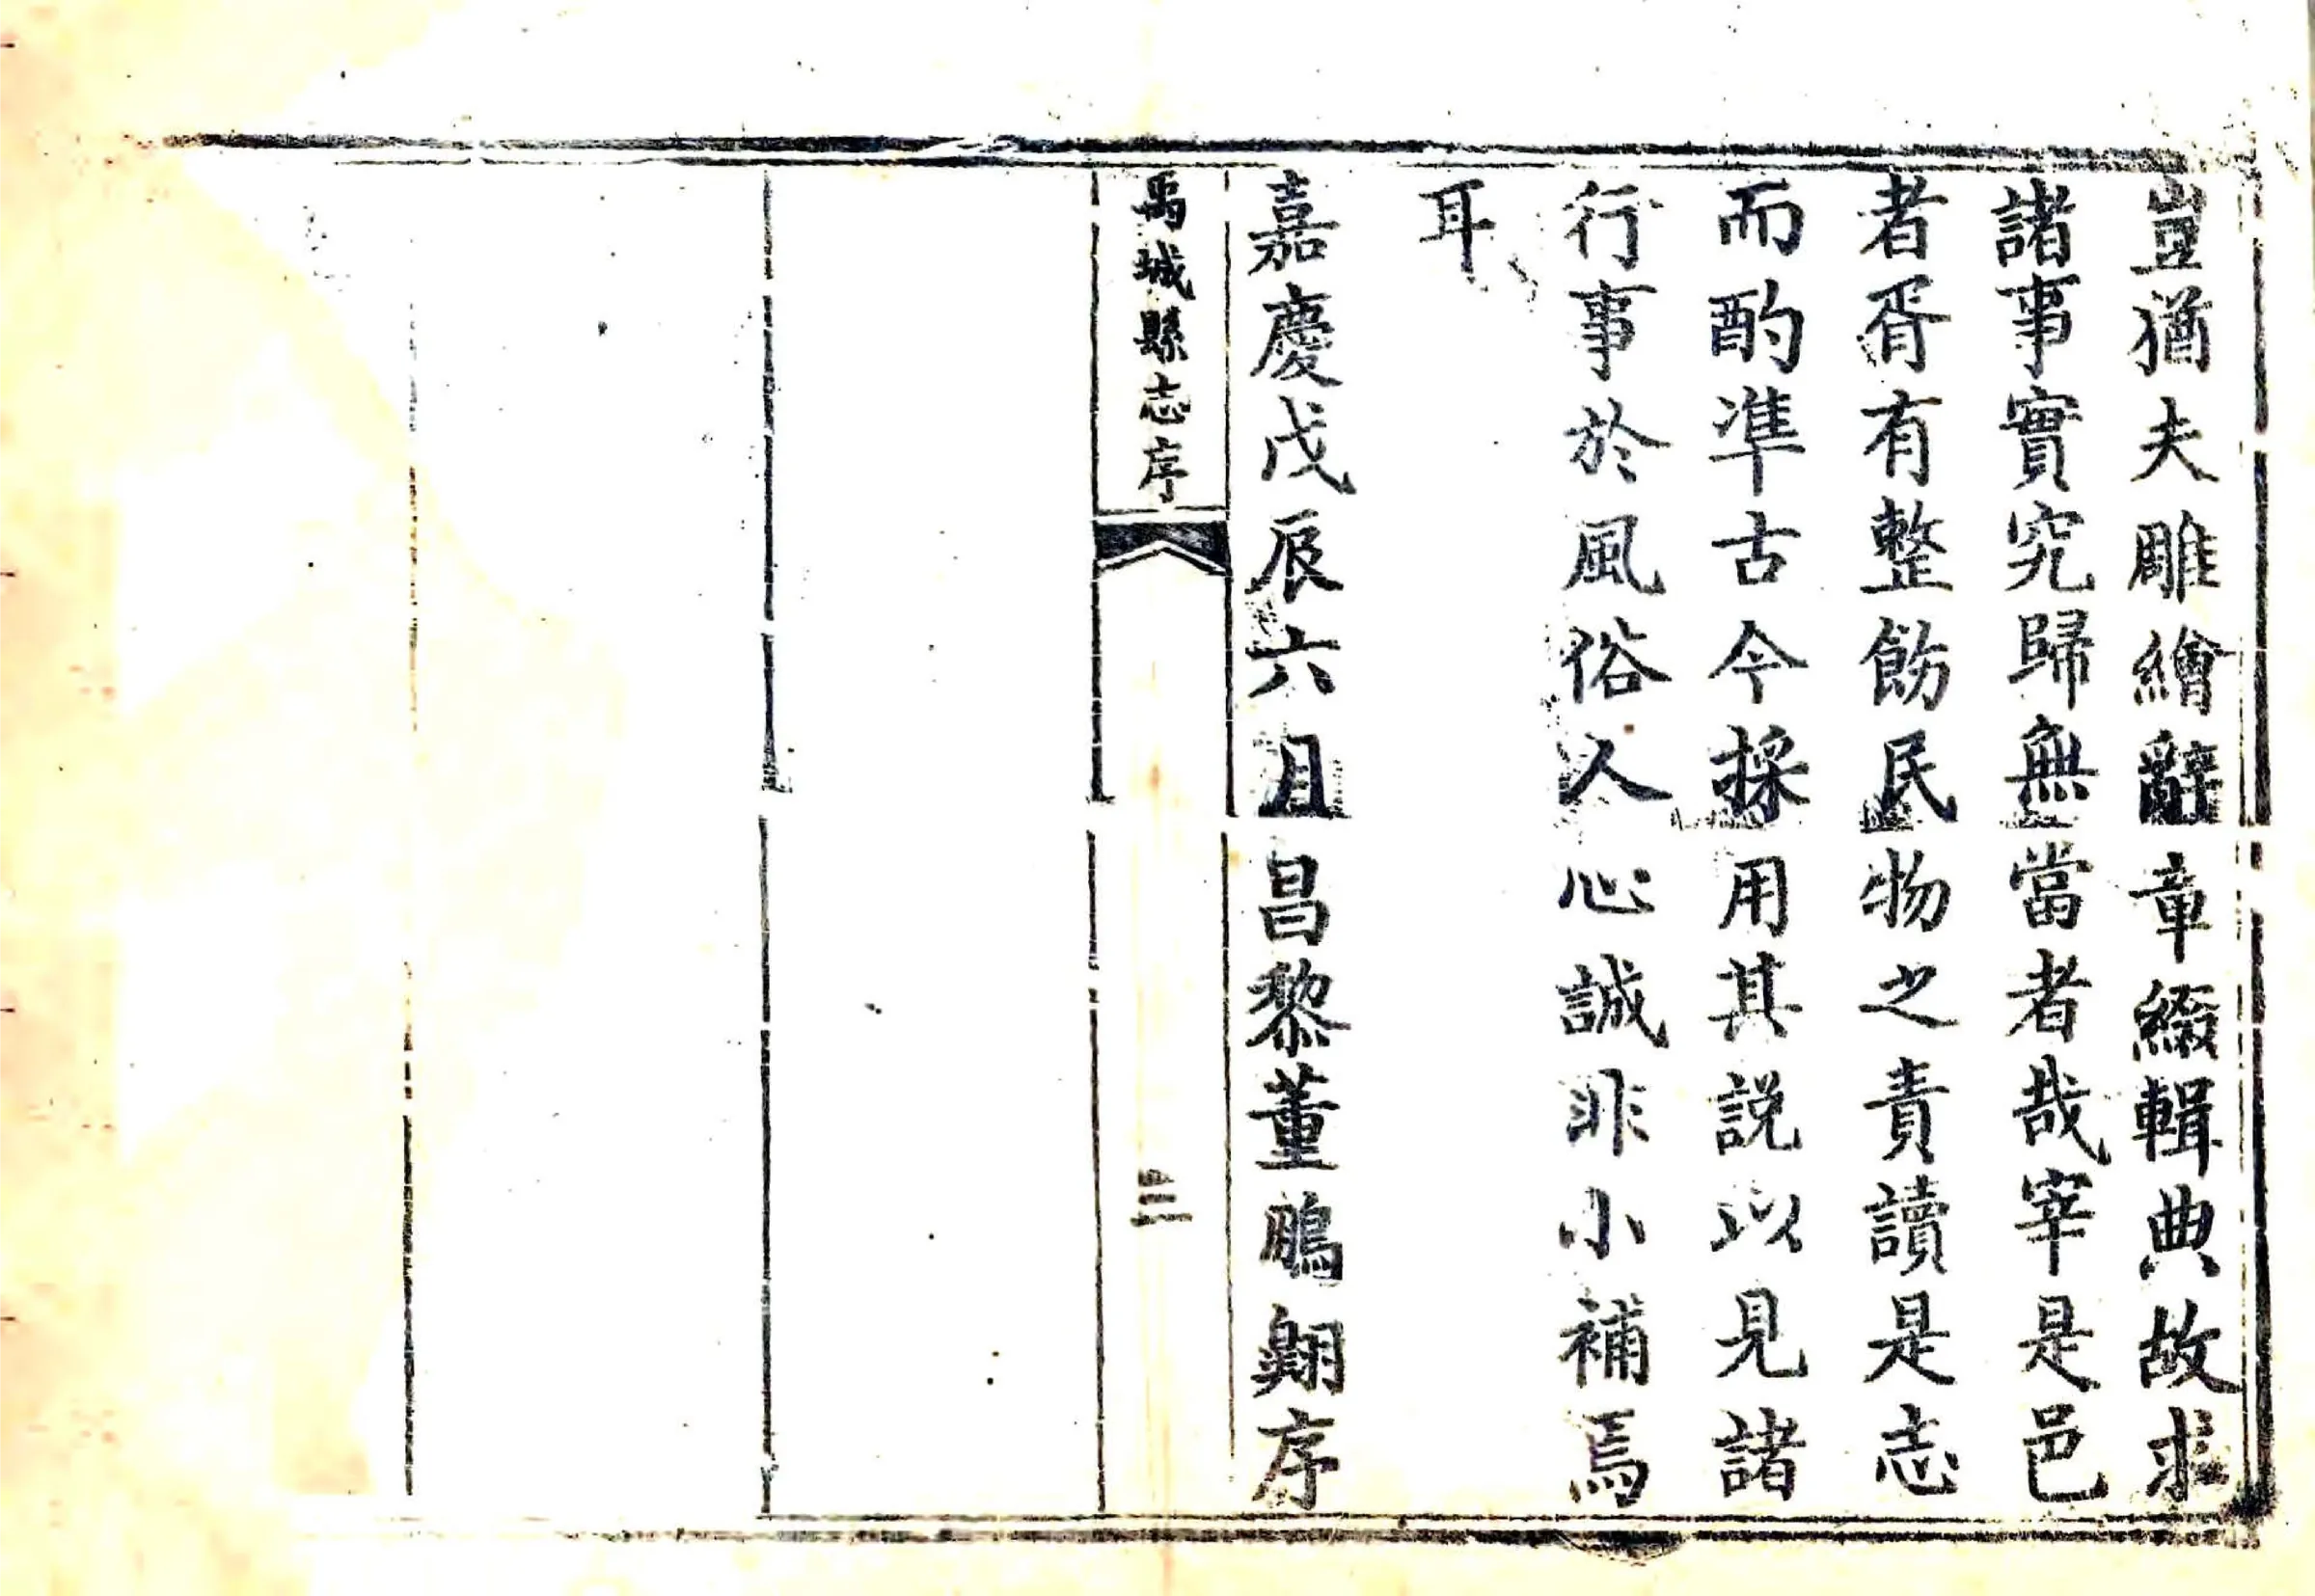 豈猶夫雕繪辭章綴輯典故求
諸事實究歸無當者哉宰是邑
者胥有整飭民物之責讀是志
而酌準古今採用其說以見諸
行事於風俗人心誠非小補焉
耳
嘉慶戊辰六月昌黎董鵬翱序
禹城縣志序
三